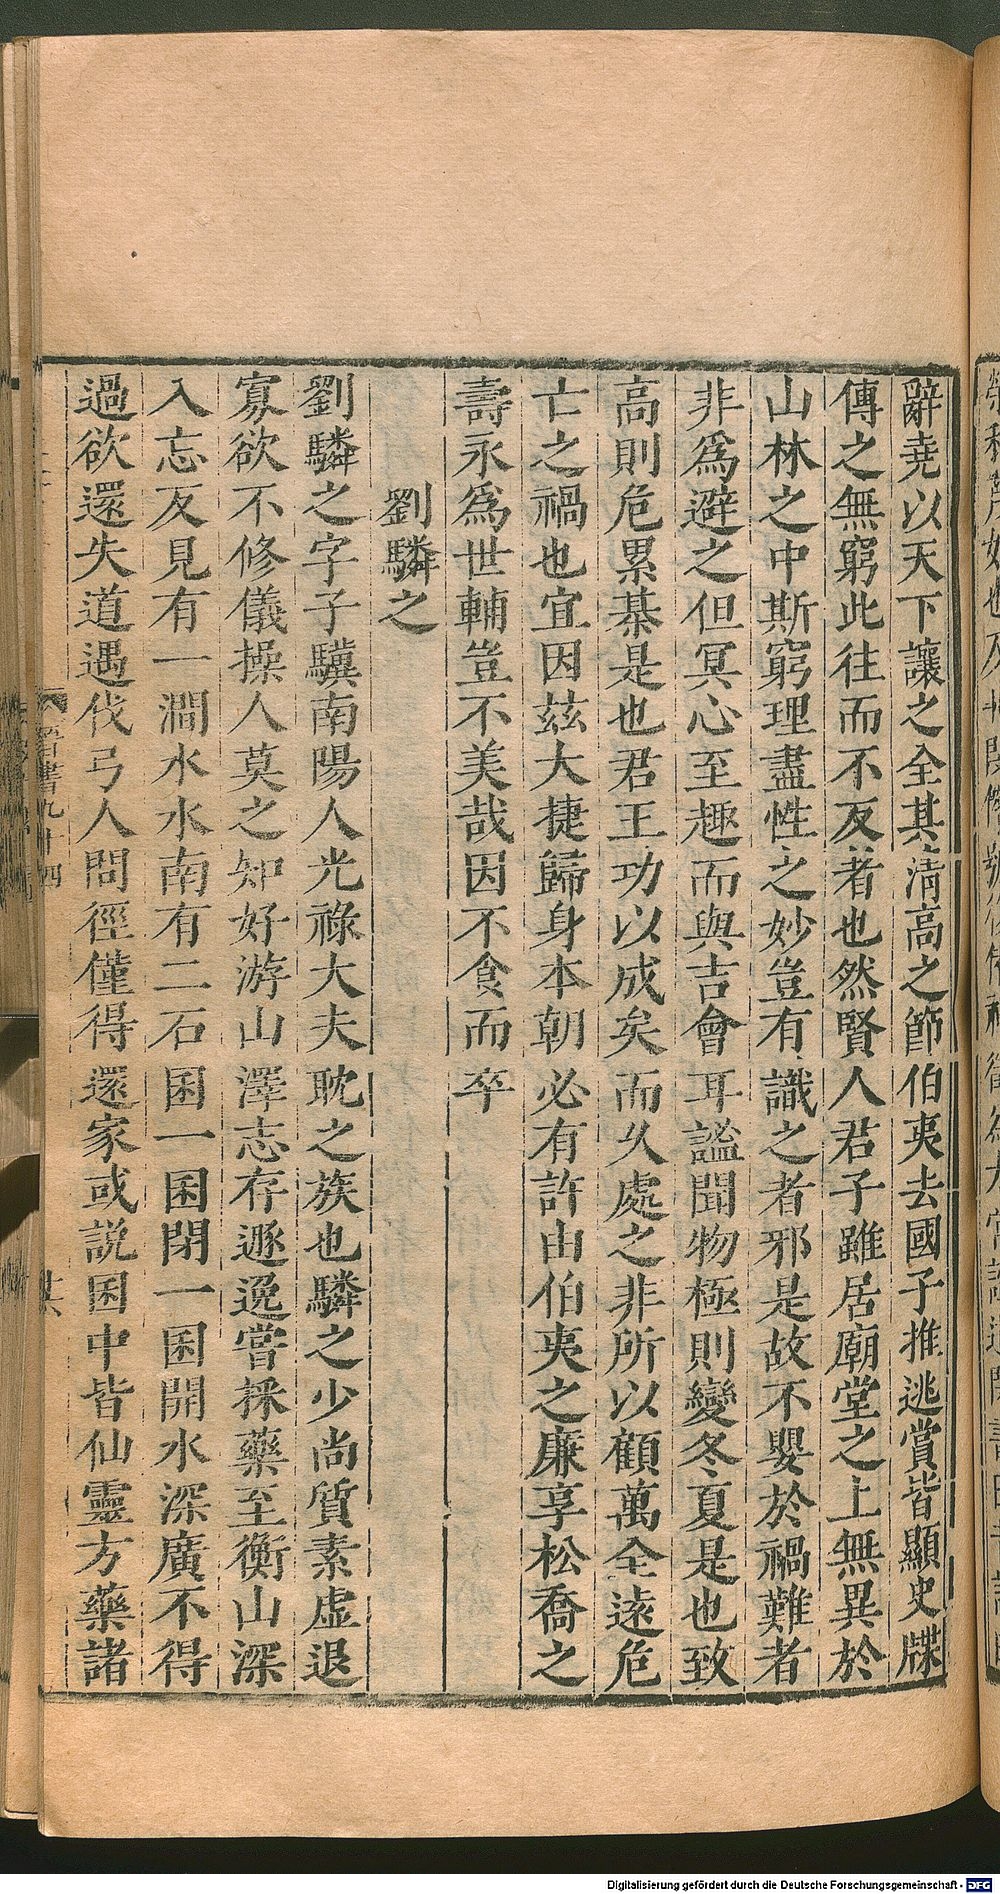 辭堯以天下讓之全其清高之節伯夷去國子推逃賞皆顯史牒
傳之無窮此往而不反者也然賢人君子雖居廟堂之上無異於
山林之中斯窮理盡性之妙豈有識之者邪是故不嬰於禍難者
非爲避之但冥心至趣而與吉會耳謐聞物極則變冬夏是也致
高則危累棊是也君王功以成矣而乆處之非所以顧萬全遠危
亡之禍也宜因兹大捷歸身本朝必有許由伯夷之廉享松喬之
壽永爲世輔豈不美哉因不食而卒
劉驎之
劉驎之字子驥南陽人光祿大夫耽之族也驎之少尚質素虛退
寡欲不修儀操人莫之知好游山澤志存遯逸嘗採藥至衡山深
入忘反見有一澗水水南有二石囷一囷閉一囷開水深廣不得
過欲還失道遇伐弓人問徑僅得還家或説囷中皆仙靈方藥諸
晉書九十四
廿六
Digitalisierung gefördert durch die Deutsche Forschungsgemeinschaft - DFG